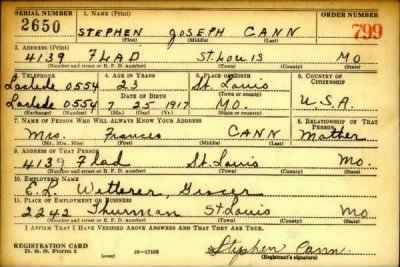 SERIAL NUMBER 1. NAME (Print) ORDER NUMBER
2650 STEPHEN JOSEPH CANN 799
(First) (Middle) (Last)
2. ADDRESS (Print)
4139 FLAD ST. LOUIS MO
(Number and street or R. F. D. number) (Town) (County) (State)
3. TELEPHONE 4. AGE IN YEARS 5. PLACE OF BIRTH 6. COUNTRY OF CITIZENSHIP
Laclede 0554 23 St. Louis
DATE OF BIRTH (Town or county)
Laclede 0554 7 25 1917 MO. U.S.A.
(Exchange) (Number) (Mo.) (Day) (Yr.) (State or country)
7. NAME OF PERSON WHO WILL ALWAYS KNOW YOUR ADDRESS 8. RELATIONSHIP OF THAT PERSON
Mrs. Francis CANN Mother
(Mr., Mrs., Miss) (First) (Middle) (Last)
9. ADDRESS OF THAT PERSON
4139 Flad St. Louis Mo.
(Number and street or R. F. D. number) (Town) (County) (State)
10. EMPLOYER'S NAME
E. L. Grocer
11. PLACE OF EMPLOYMENT OR BUSINESS
2242 Thurman St Louis Mo.
(Number and street or R. F. D. number) (Town) (County) (State)
I AFFIRM THAT I HAVE VERIFIED ABOVE ANSWERS AND THAT THEY ARE TRUE.
REGISTRATION CARD
D. S. S. Form 1 (over) 16—17105 Stephen Cann
(Registrant's signature)